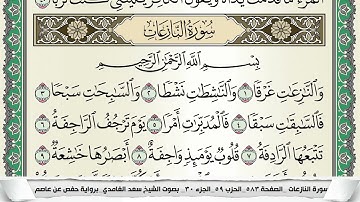 المرء ما قدمت يداه ويقول الكافر يليتني كنت تربا
سُورَةُ النَّازِعَاتِ
بِسْمِ اللَّهِ الرَّحْمَٰنِ الرَّحِيمِ
وَالنَّٰزِعَٰتِ غَرْقًا ١ وَالنَّٰشِطَٰتِ نَشْطًا ٢ وَالسَّٰبِحَٰتِ سَبْحًا ٣
فَالسَّٰبِقَٰتِ سَبْقًا ٤ فَالْمُدَبِّرَٰتِ أَمْرًا ٥ يَوْمَ تَرْجُفُ الرَّاجِفَةُ ٦
تَتْبَعُهَا الرَّادِفَةُ ٧ قُلُوبٌ يَوْمَئِذٍ وَاجِفَةٌ ٨ أَبْصَٰرُهَا خَٰشِعَةٌ ٩
سورة النازعات الصفحة ٥٨٣ الحزب ٥٩ الجزء ٣٠ بصوت الشيخ سعد الغامدي برواية حفص عن عاصم